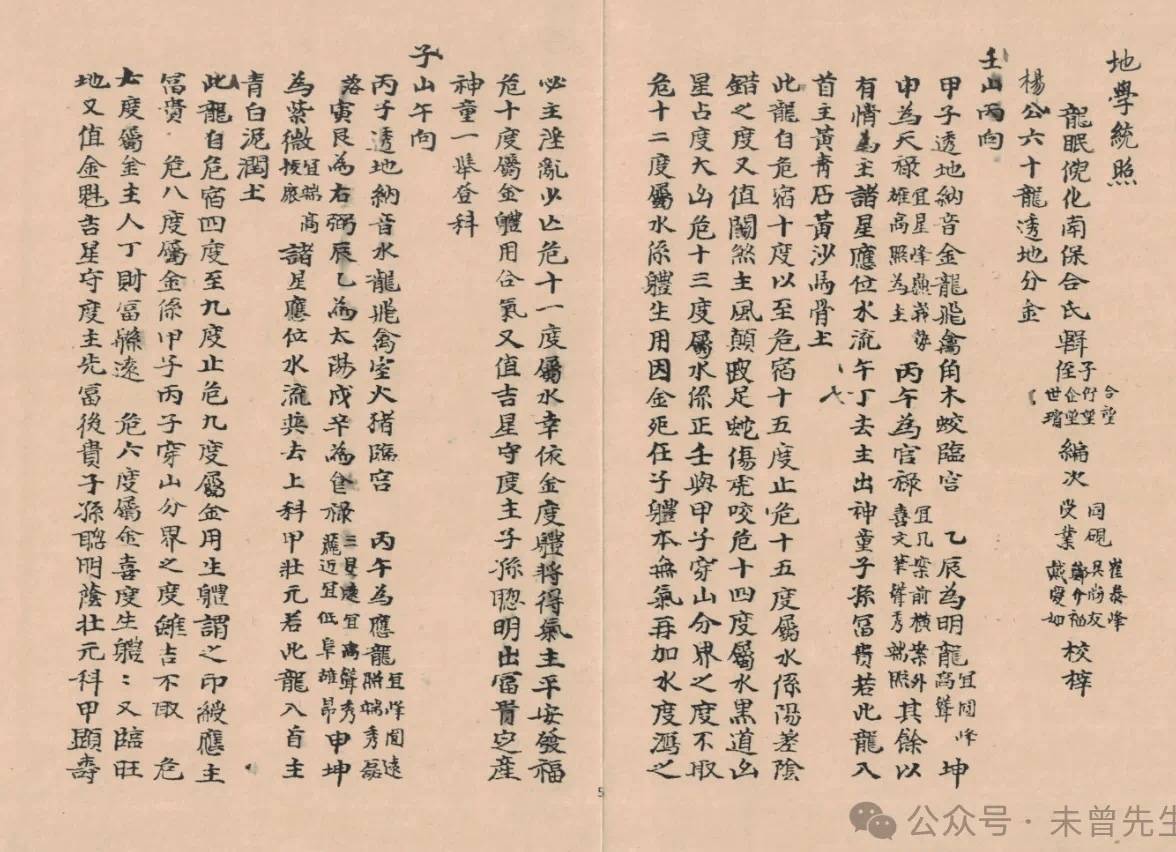 地學統照
龍眠倪化南保合氏輯子侄合望行望企望世瑨編次同硯受業崔泰峰吳尚友校梓
楊公六十龍透地分金
壬山丙向
甲子透地納音金龍飛禽角木蛟臨宮 乙辰為明龍宜圓峰高聳坤
申為天祿宜星峰雄高照為主 丙午為官祿宜几案前橫案外喜文筆聳秀端照其餘以
有情為主諸星應位水流午丁去主出神童子孫富貴若此龍入
首主黃青石黃沙馬骨土
此龍自危宿十度以至危宿十五度止危十五度屬水係陽差陰
錯之度又值關煞主風顛跛足蛇傷虎咬危十四度屬水黑道凶
星占度大凶危十三度屬水係正壬與甲子穿山分界之度不取
危十二度屬水係體生用因金死在子體本無氣再加水度瀉之
必主淫亂少亡危十一度屬水幸依金度體將得氣主平安發福
危十度屬金體用合氣又值吉星守度主子孫聰明出富貴定產
神童一舉登科
子山午向
丙子透地納音水龍飛禽室火猪臨宮 丙午為應龍宜峰圓遠照端秀磊
落寅艮為右弼辰乙為太陽戌辛為食祿三星遠宜高聳秀麗近宜低阜雄昂申坤
為紫微宜端高諸星應位水流巽去上科甲壯元若此龍入首主
青白泥潤土
此龍自危宿四度至九度止危九度屬金用生體謂之印綬應主
富貴 危八度屬金係甲子丙子穿山分界之度雖吉不取 危
七度屬金主人丁財富綿遠 危六度屬金喜度生體：又臨旺
地又值金魁吉星守度主先富後貴子孫聰明蔭壯元科甲顯壽
5
公众号·未曾先生